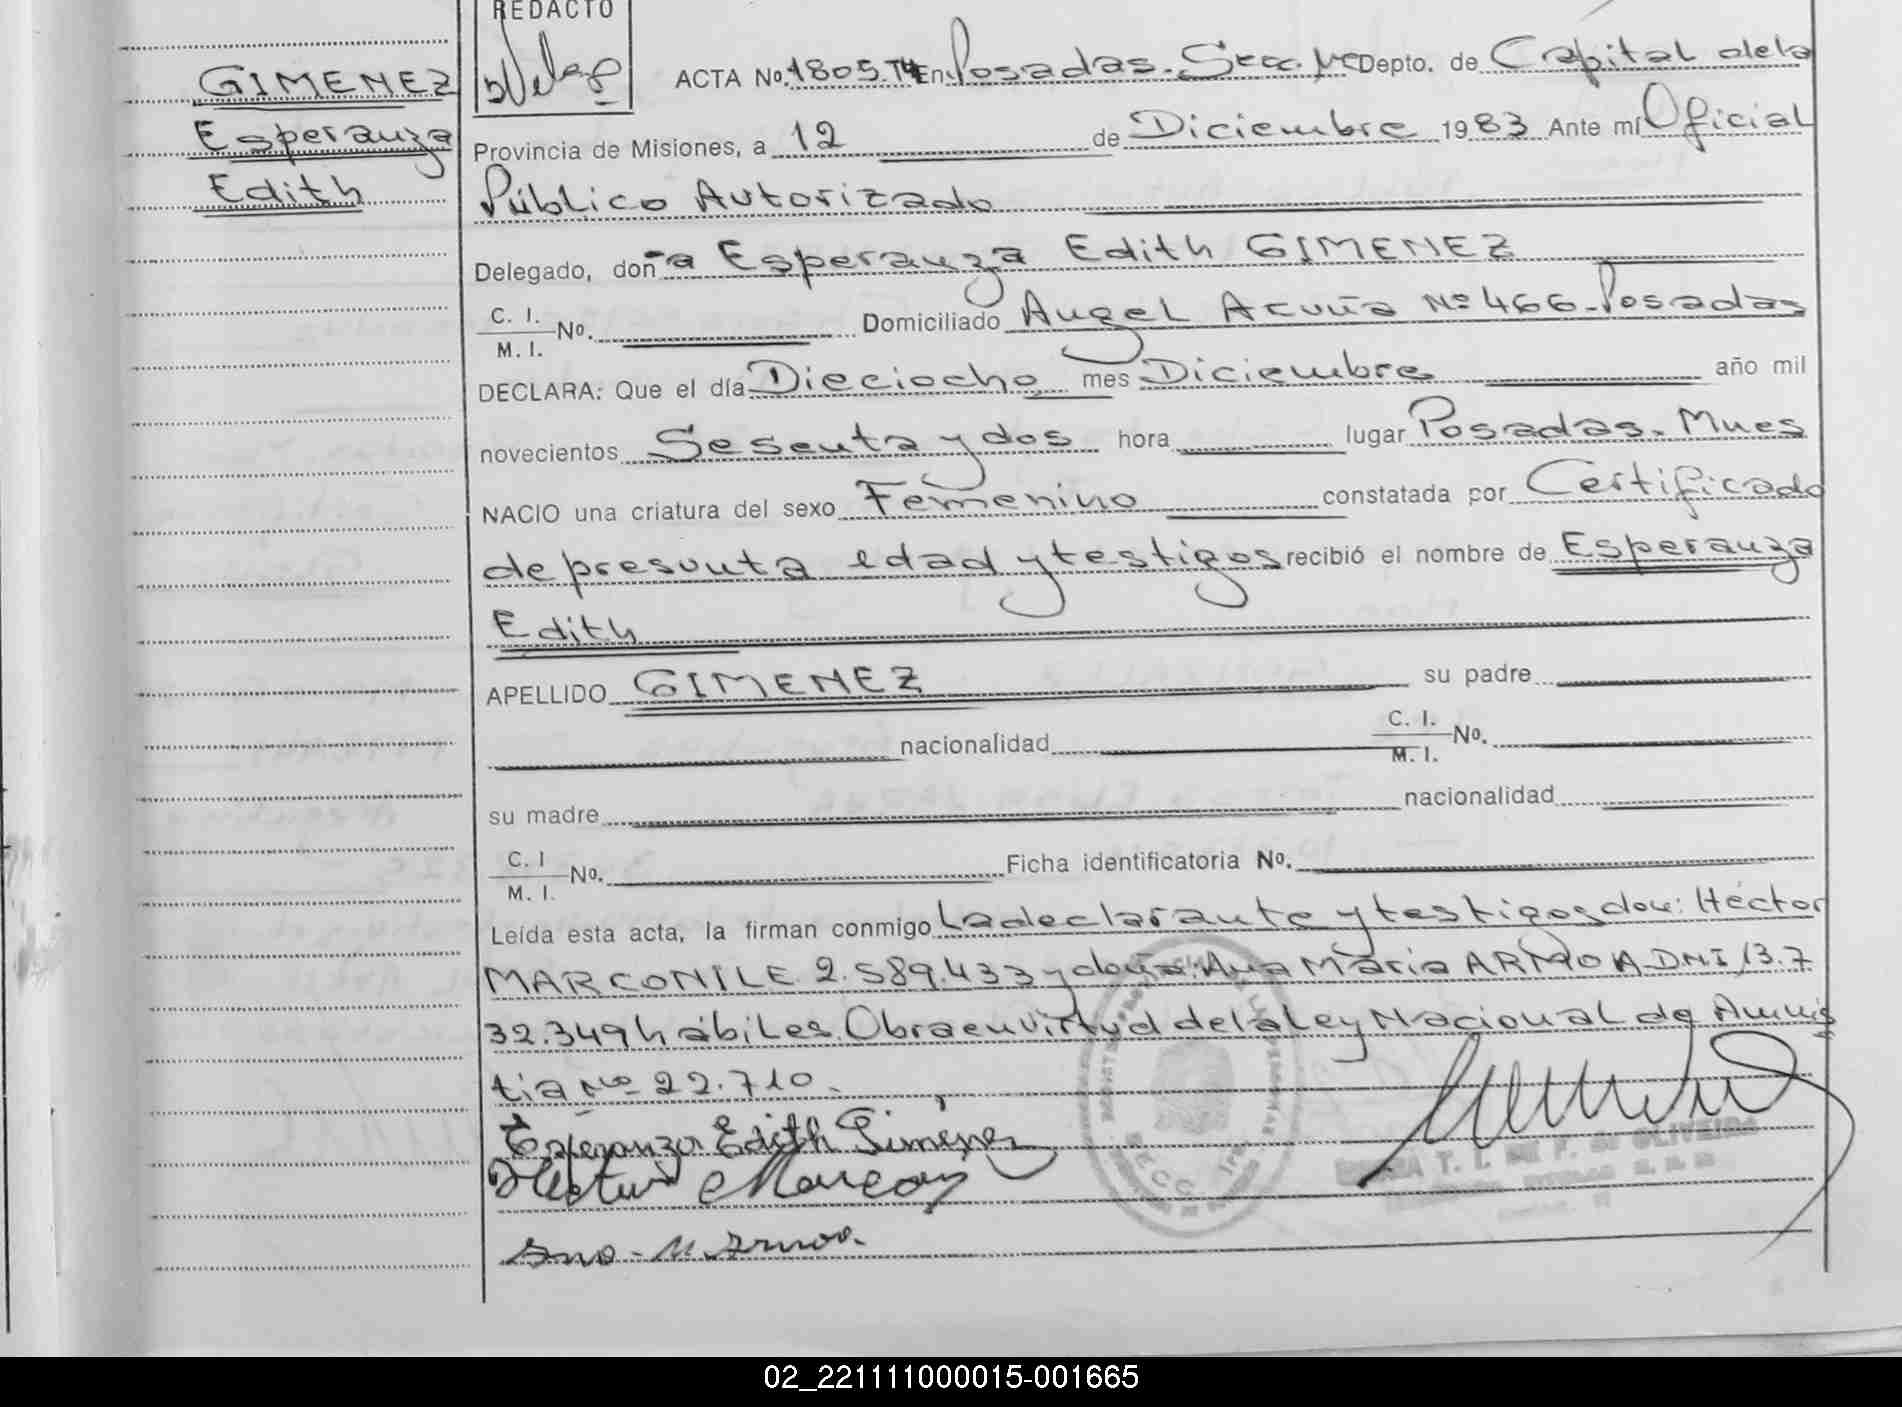 REDACTO
GIMENEZ
Esperanza
Edith
ACTA No. 1805. T4 En Posadas. Secc. 1ra Depto. de Capital de la
Provincia de Misiones, a 12 de Diciembre 1983 Ante mí Oficial
Público Autorizado
Delegado, doña Esperanza Edith GIMENEZ
C. I.
M. I. No. Domiciliado Angel Acuña Nº 466-Posadas
DECLARA: Que el día Dieciocho, mes Diciembre año mil
novecientos Sesenta y dos hora lugar Posadas. Mnes
NACIO una criatura del sexo Femenino constatada por Certificado
de presunta edad y testigos recibió el nombre de Esperanza
Edith
APELLIDO GIMENEZ su padre
nacionalidad C. I.
M. I. No.
su madre nacionalidad
C. I
M. I. No. Ficha identificatoria No.
Leída esta acta, la firman conmigo La declarante y testigos don: Héctor
MARCONI LE. 2.589.433 y doña: Ana María ARMOA DNI 13.7
32.349 hábiles. Obra en virtud de la Ley Nacional de Amnis
tia Nº 22.710.
Esperanza Edith Gimenez
Hector Marconi
Ana M. Armoa.
02_221111000015-001665